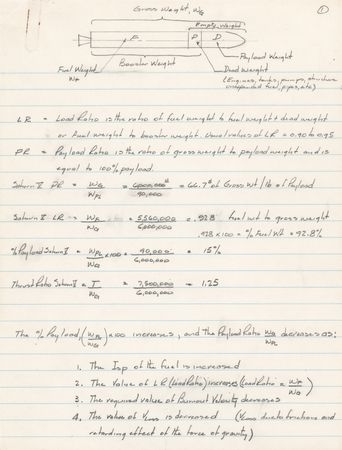 Gross Weight, WG
①
Empty Weight
F
P
D
Payload Weight
Fuel Weight
WF
Booster Weight
Dead Weight
(Engines, tanks, pumps, structure
unexpended fuel, pipes, etc)
LR = Load Ratio is the ratio of fuel weight to fuel weight + dead weight
or fuel Weight to booster weight. Usual values of LR = 0.90 to 0.95
PR = Payload Ratio is the ratio of gross weight to payload weight and is
equal to 100% payload.
Saturn V PR = WG/WPL = 6,000,000#/90,000 = 66.7# of Gross Wt / lb of Payload
Saturn V LR = WF/WG = 5,560,000/6,000,000 = .928 fuel wt to gross weight
.928 x 100 = % Fuel Wt = 92.8%
% Payload Saturn V = WPL/WG x 100 = 90,000/6,000,000 = 15%
Thrust Ratio Saturn V = T/WG = 7,500,000/6,000,000 = 1.25
The % Payload, (WPL/WG) x 100 increases, and the Payload Ratio WG/WPL decreases as:
1. The Isp of the fuel is increased
2. The Value of LR (Load Ratio) increases (Load Ratio = WF/WG)
3. The required value of Burnout Velocity decreases
4. The value of VLoss is decreased (VLoss due to frictions and
retarding effect of the force of gravity)